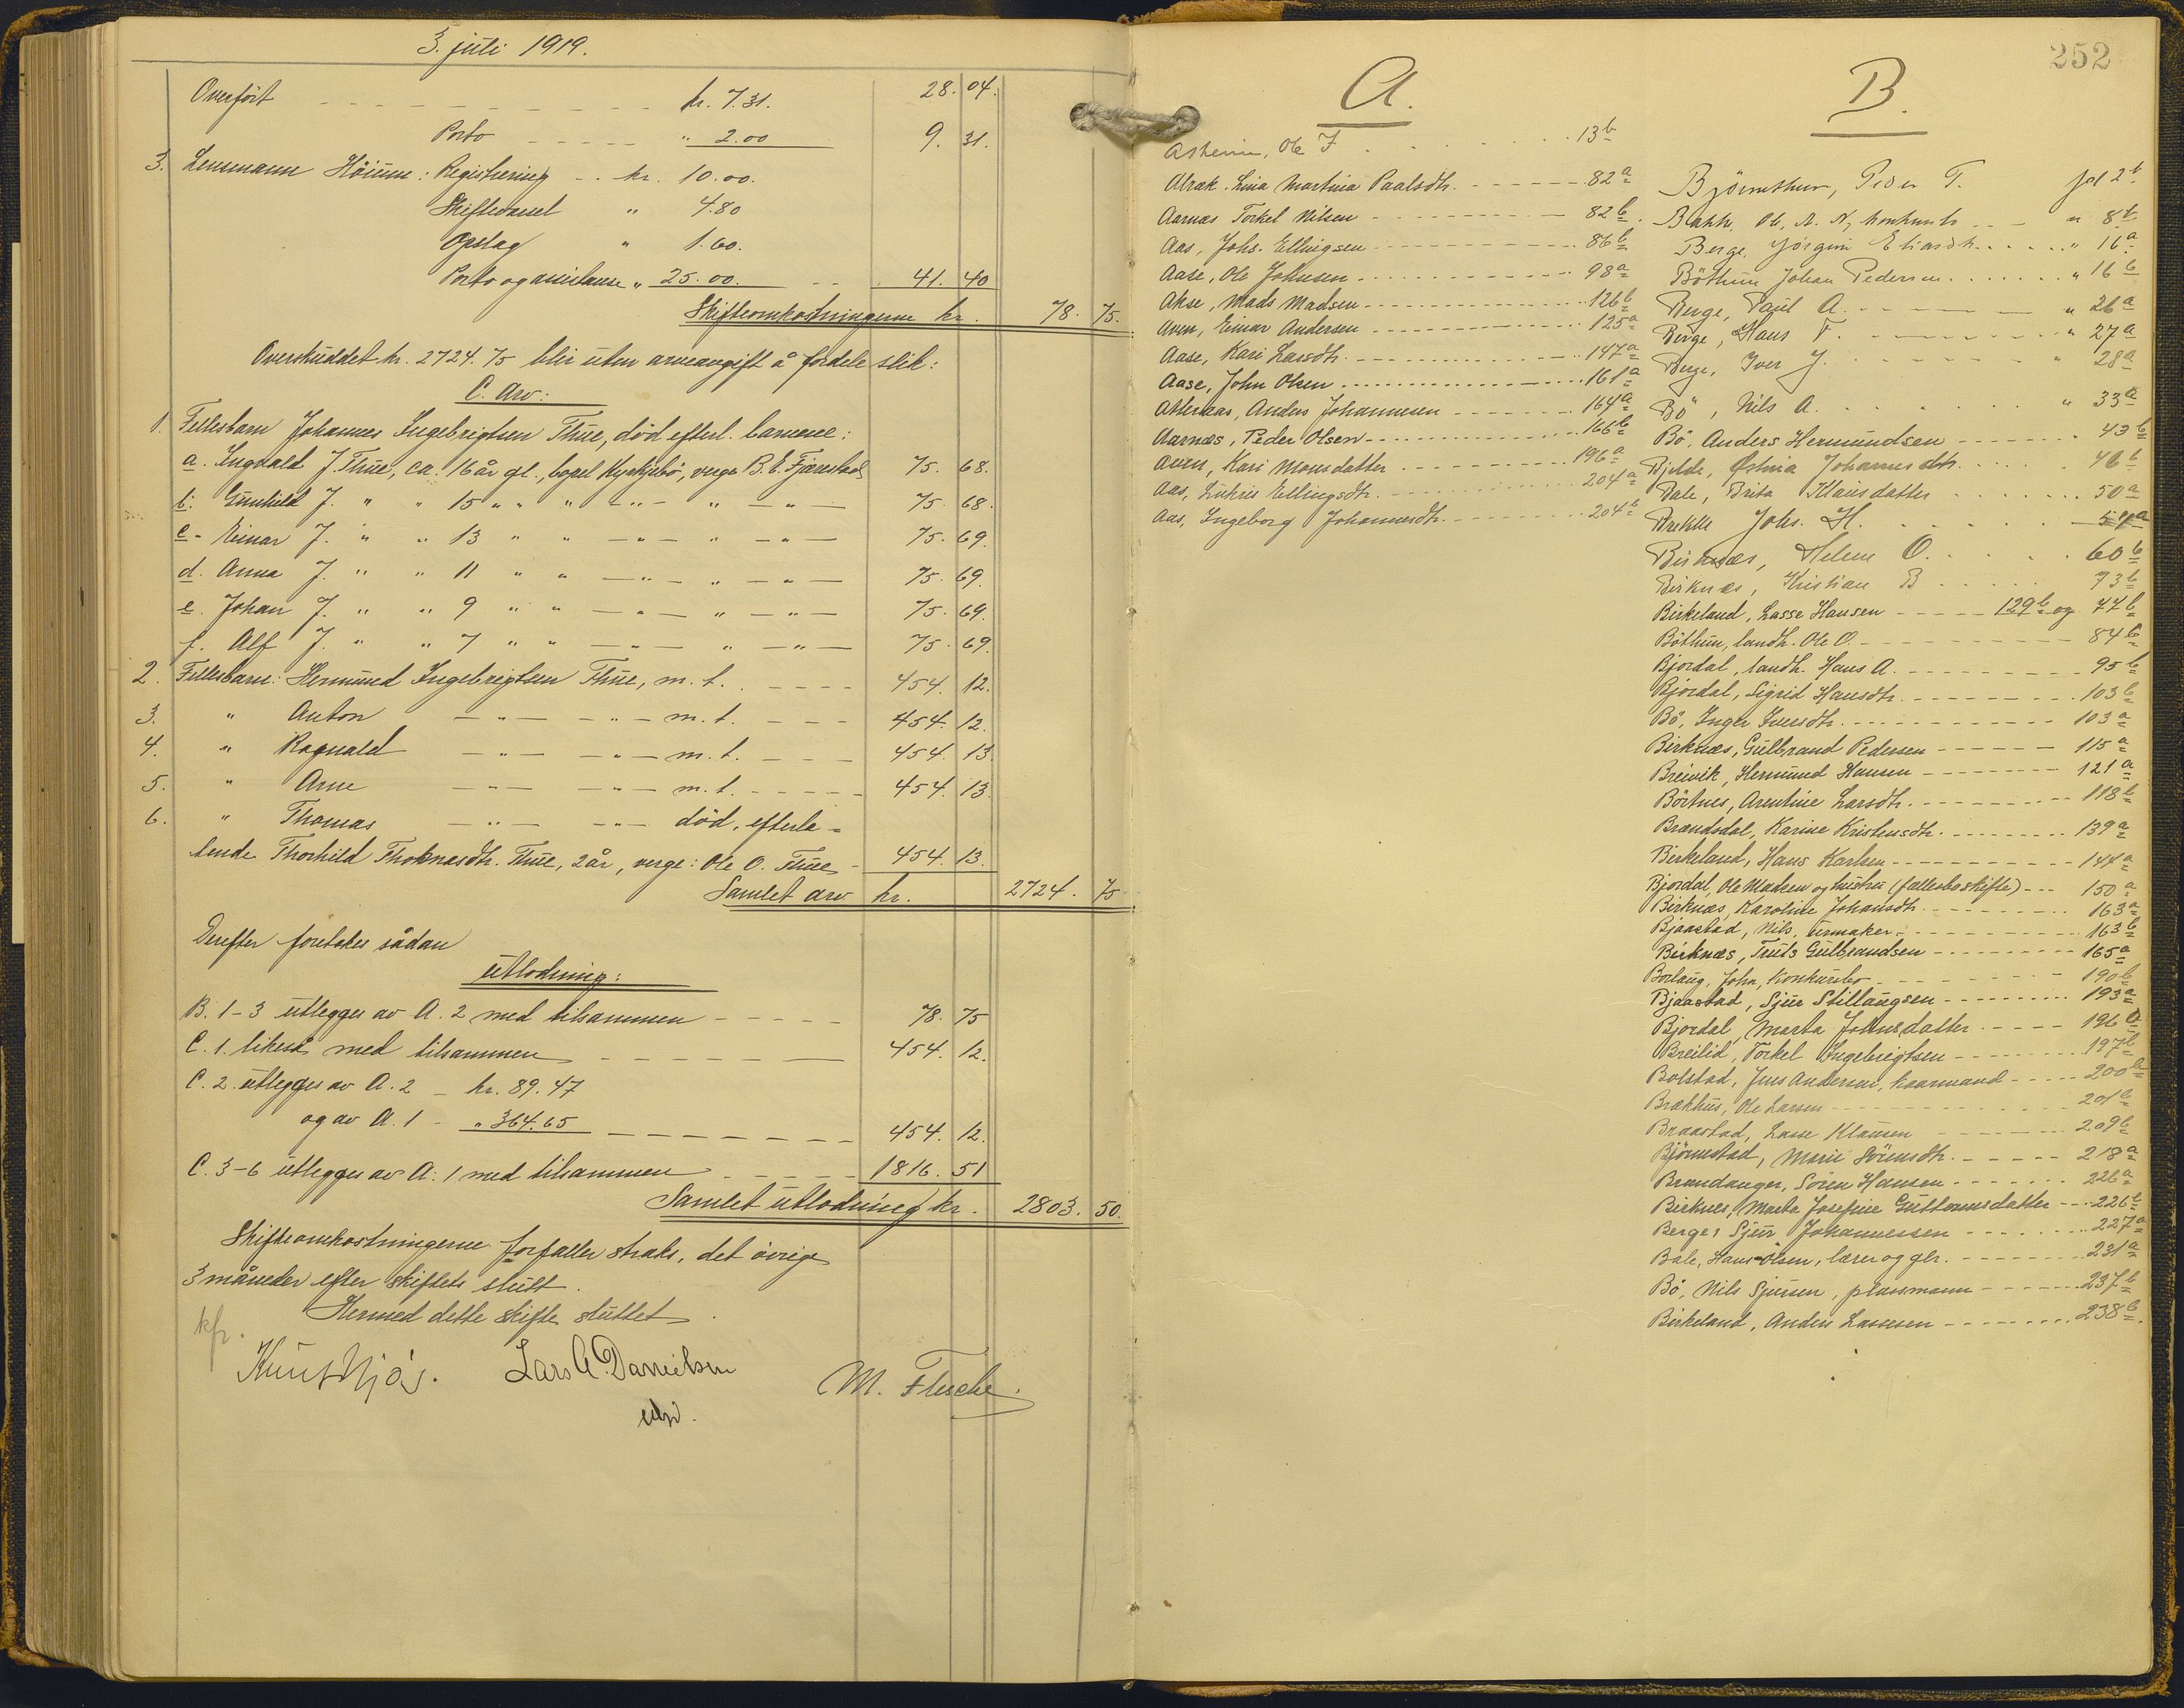 3. juli 1919.
Overført kr. 7.31. 28.04.
Porto " 2.00 9.31.
3. Lensmann Höium: Registrering kr. 10.00.
Skiftevarsel " 4.80
Opslag " 1.60.
Porto og assistanse " 25.00. 41.40
Skifteomkostningerne kr. 78.75.
Overskuddet kr. 2724.75 blir uten arveavgift å fordele slik:
C. Arv:
1. Fellesbarn Johannes Ingebrigtsen Thue, död efterl. barnene:
a. Ingvald J. Thue, ca. 16 år gl., bopel Kyrkjebö, verge B. E. Fjærestad 75.68.
b. Gunhild J. " " 15 " " " — " — " — " — 75.68.
c. Einar J. " " 13 " " — " — " — " — 75.69.
d. Anna J. " " 11 " " — " — " — " — 75.69.
e. Johan J. " " 9 " " — " — " — " — 75.69.
f. Alf J. " " 7 " " — " — " — " — 75.69.
2. Fellesbarn: Hermund Ingebrigtsen Thue, m. t. 454.12.
3. " Anton — " — — " — m. t. 454.12.
4. " Ragnald — " — — " — m. t. 454.13.
5. " Arne — " — — " — m. t. 454.13.
6. " Thomas — " — — " — död, efterla-
tende Thorhild Thomasdtr. Thue, 2 år, verge: Ole O. Thue 454.13.
Samlet arv kr. 2724.75
Derefter foretokes sådan
Utlodning:
B. 1-3 utlegges av A. 2 med tilsammen 78.75
C. 1. likeså med tilsammen 454.12.
C. 2. utlegges av A. 2 kr. 89.47
og av A. 1 " 364.65 454.12.
C. 3-6 utlegges av A. 1 med tilsammen 1816.51
Samlet utlodning kr. 2803.50.
Skifteomkostningerne forfaller straks, det övrige
3 måneder efter skiftets slutt.
Hermed dette skifte sluttet.
kfr.
Knut Njös. Lars A. Danielsen M. Flesche.
A.
Askenin, Ole J. 13b
Alræk, Lina Martina Paalsdtr. 82a
Aarnæs Torkel Nilsen 82b.
Aas, Johs. Ellingsen 86b
Aase, Ole Johnsen 98a
Akse, Mads Madsen 126b
Aven, Einar Andersen 125a
Aase, Kari Larsdtr. 147a
Aase, John Olsen 161a
Atteraas, Anders Johannesen 164a
Aarnæs, Peder Olsen 166b
Aven, Kari Monsdatter 196a
Aas, Lukris Ellingsdtr. 204a
Aas, Ingeborg Johannesdtr. 204b
252
B.
Björnethun, Peder T. fol 2b
Bakk, Ol. A. N, konkursbo " 8b
Berge, Jörgine Eliasdtr. " 16a
Böthun Johan Pedersen " 16b
Berge, Paul A. " 26a
Berge, Hans F. " 27a
Berge, Iver J. " 28a
Bö, Nils A. " 33a
Bö, Anders Hermundsen 43b
Bjelde, Østina Johannesdtr. 46b
Bale, Brita Klausdatter 50a
Brekke Johs. H. 54a
Birknæs, Helene O. 60b
Birknæs, Kristian B 73b
Birkeland, Lasse Hansen 129b og 77b
Böthun, landh. Ole O. 84b
Bjordal, landh. Hans A. 95b
Bjordal, Sigrid Hansdtr. 103b
Bö, Inger Iversdtr. 103a
Birknæs, Gulbrand Pedersen 115a
Breivik, Hermund Hansen 121a
Börtnes, Arentine Larsdtr. 118b
Brændsdal, Karine Kristensdtr. 139a
Birkeland, Hans Karlsen 144a
Bjordal, Ole Madsen og hustru (fællesboskifte) 150a
Birknæs, Karoline Johansdtr. 163a
Bjaastad, Nils, urmaker 163b
Birknæs, Truls Gulbrandsen 165a
Borlaug, John, konkursbo 190b
Bjaastad, Sjur Stillaugsen 193a
Bjordal, Marta Johnsdatter 196b
Breilid, Torkel Ingebrigtsen 197b
Bolstad, Jens Andersen, kaarmand 200b
Brækhus, Ole Larsen 201b
Braastad, Lasse Klausen 209b
Björnestad, Marie Sörensdtr. 218a
Brandanger, Sören Hansen 226a
Birknes, Marta Josefine Guttormsdatter 226b
Berge, Sjur Johannessen 227a
Bale, Hans Olsen, lærer og gbr. 231a
Bö, Nils Sjursen, plassmann 237b
Birkeland, Anders Lassesen 238b.